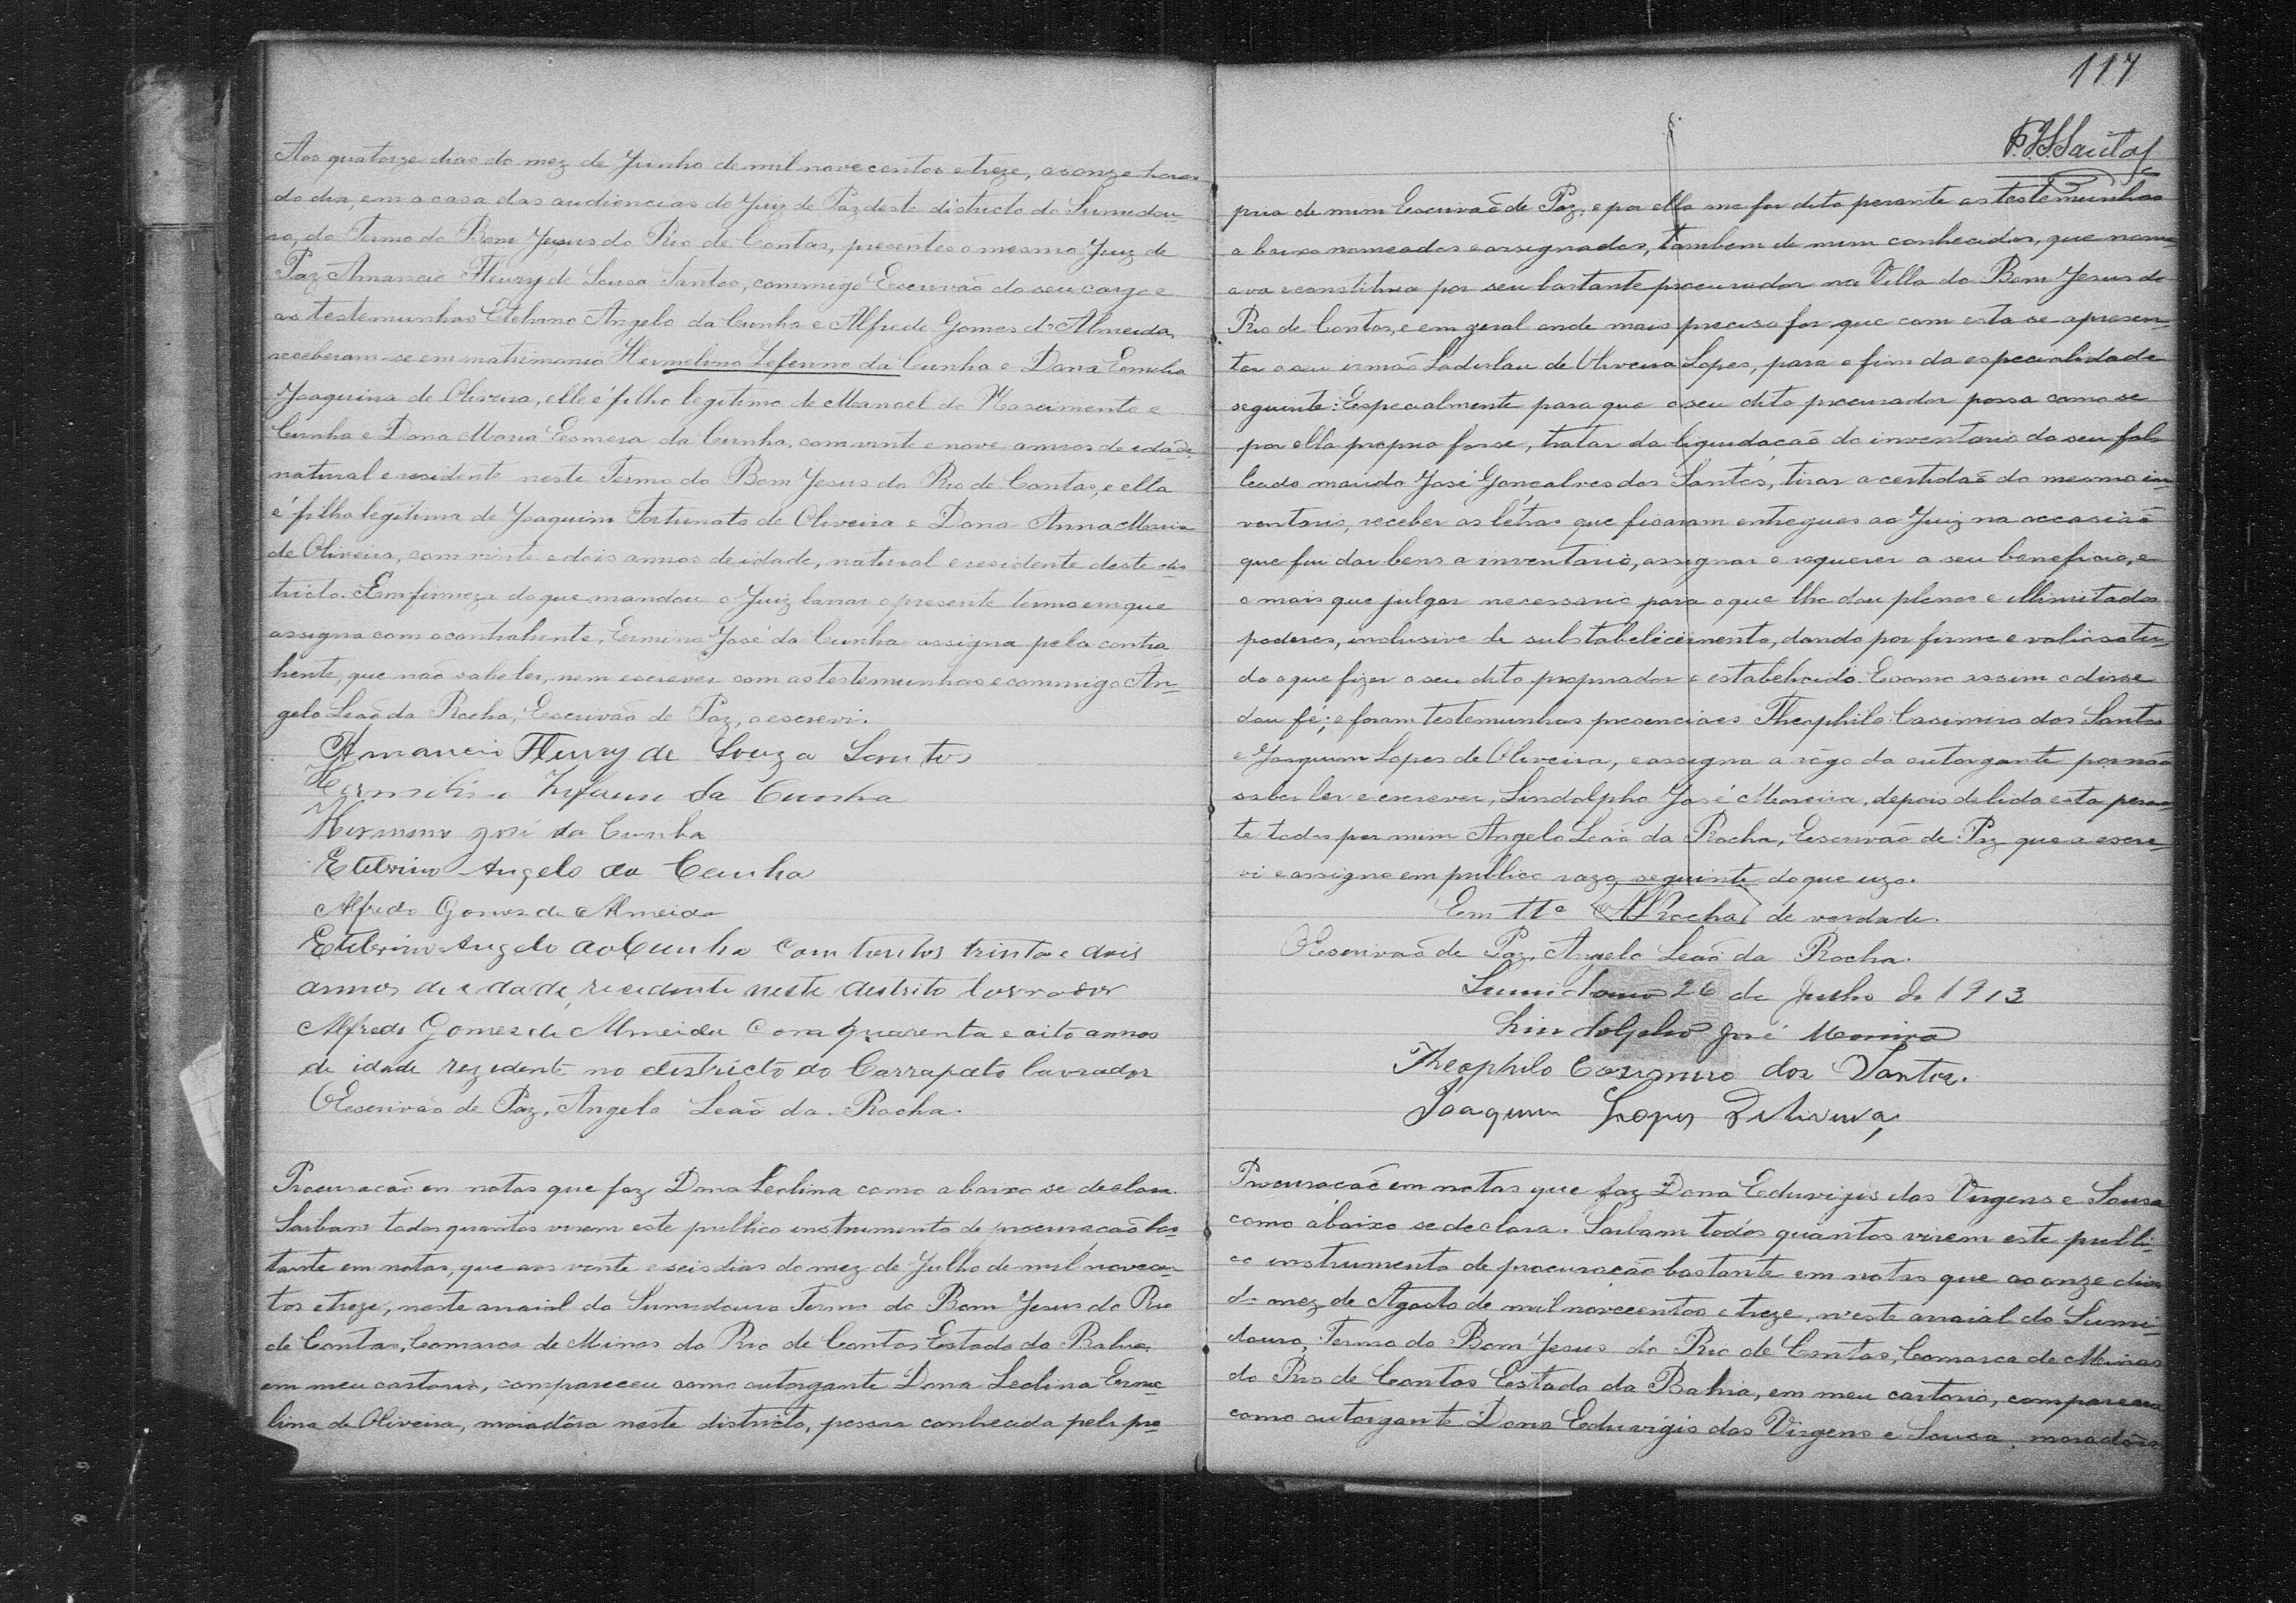 Aos quatorze dias do mez de Junho de mil nove centos e treze, as onze horas
do dia, em a casa das audiencias do Juiz de Paz deste districto do Sumidou-
ro, do Termo do Bom Jesus do Rio de Contas, presentes o mesmo Juiz de
Paz Amancio Fleury de Sousa Santos, commigo Escrivão do seu cargo e
as testemunhas Etelvino Angelo da Cunha e Alfredo Gomes de Almeida,
receberam-se em matrimonio Hermelino Zeferino da Cunha e Dona Emelia
Joaquina de Oliveira, elle é filho legitimo de Manoel do Nascimento e
Cunha e Dona Maria da Cunha, com vinte e nove annos de idade,
natural e residente neste Termo do Bom Jesus do Rio de Contas, e ella
é filha legitima de Joaquim Fortunato de Oliveira e Dona Anna Maria
de Oliveira, com vinte e dois annos de idade, natural e residente deste dis-
tricto. Em firmeza do que mandou o Juiz lavrar o presente termo em que
assigna com o contrahente, Ermino José da Cunha assigna pela contra
hente, que não sabe ler, nem escrever com as testemunhas e commigo An-
gelo Leão da Rocha, Escrivão de Paz, o escrevi.
Amancio Fleury de Souza Santos
Hermelino Zeferino da Cunha
Hermino José da Cunha
Etelvino Angelo da Cunha
Alfredo Gomes de Almeida
Etelvino Angelo da Cunha com trinta e dois
annos de idade, rezidente neste destrito lavrador
Alfredo Gomes de Almeida com quarenta e oito annos
de idade rezidente no destricto do Carrapato lavrador
O Escrivão de Paz, Angelo Leão da Rocha.
Procuração em notas que faz Dona Leolina como abaixo se declara.
Saibam todos quantos virem este publico instrumento de procuração bas-
tante em notas, que aos vinte e seis dias do mez de Julho de mil novecen-
tos e treze, neste arraial do Sumidouro Termo do Bom Jesus do Rio
de Contas, Comarca de Minas do Rio de Contas Estado da Bahia,
em meu cartorio, compareceu como outorgante Dona Leolina
lina de Oliveira, moradôra neste districto, pessoa conhecida pela pro-
117
F. S. Santos
pria de mim Escrivão de Paz, e por ella me foi dito perante as testemunhas
a baixo nomeadas e assignadas, tambem de mim conhecidas, que nome-
ava e constituia por seu bastante procurador na Villa do Bom Jesus do
Rio de Contas, e em geral onde mais preciso for que com esta se apresen-
tar o seu irmão Ladislau de Oliveira Lopes, para o fim da especialidade
seguinte: Especialmente para que o seu dito procurador possa como se
por ella propria fosse, tratar da liquidacaõ do inventario do seu fal-
lecido marido José Gonçalves dos Santos, tirar a certidaõ do mesmo in-
ventario, receber as letras que ficaram entregues ao Juiz na occasião
que fui dar bens a inventario, assignar e requerer a seu beneficio, e
o mais que julgar necessario para o que lhe dou plenos e illimitados
poderes, inclusive de substabelecimento, dando por firme e valioso tu-
do o que fizer o seu dito procurador e estabelicido. E como assim o disse
dou fé; e foram testemunhas presenciaes Theophilo Casimiro dos Santos
e Joaquim Lopes de Oliveira, e assigna a rôgo da outorgante por não
saber ler e escrever, Lindolpho José Moreira, depois de lida esta peran-
te todos por mim Angelo Leão da Rocha, Escrivão de Paz que a escre-
vi e assigno em publico razo, seguinte do que uzo.
Em tto ALRocha de verdade.
O Escrivão de Paz, Angelo Leão da Rocha.
Sumidouro 26 de Julho de 1913
Lindolpho José Moreira
Theophilo Casimiro dos Santos.
Joaquim Lopes D'Oliveira,
Procuração em notas que faz Dona Eduvigis das Virgens e Sousa
como abaixo se declara. Saibam todos quantos virem este publi-
co instrumento de procuração bastante em notas que ao onze dias
do mez de Agosto de mil novecentos e treze, n'este arraial do Sumi-
douro, Termo do Bom Jesus do Rio de Contas, Comarca de Minas
do Rio de Contas Estado da Bahia, em meu cartorio, compareceu
como outorgante Dona Eduvigis das Virgens e Sousa, moradôra